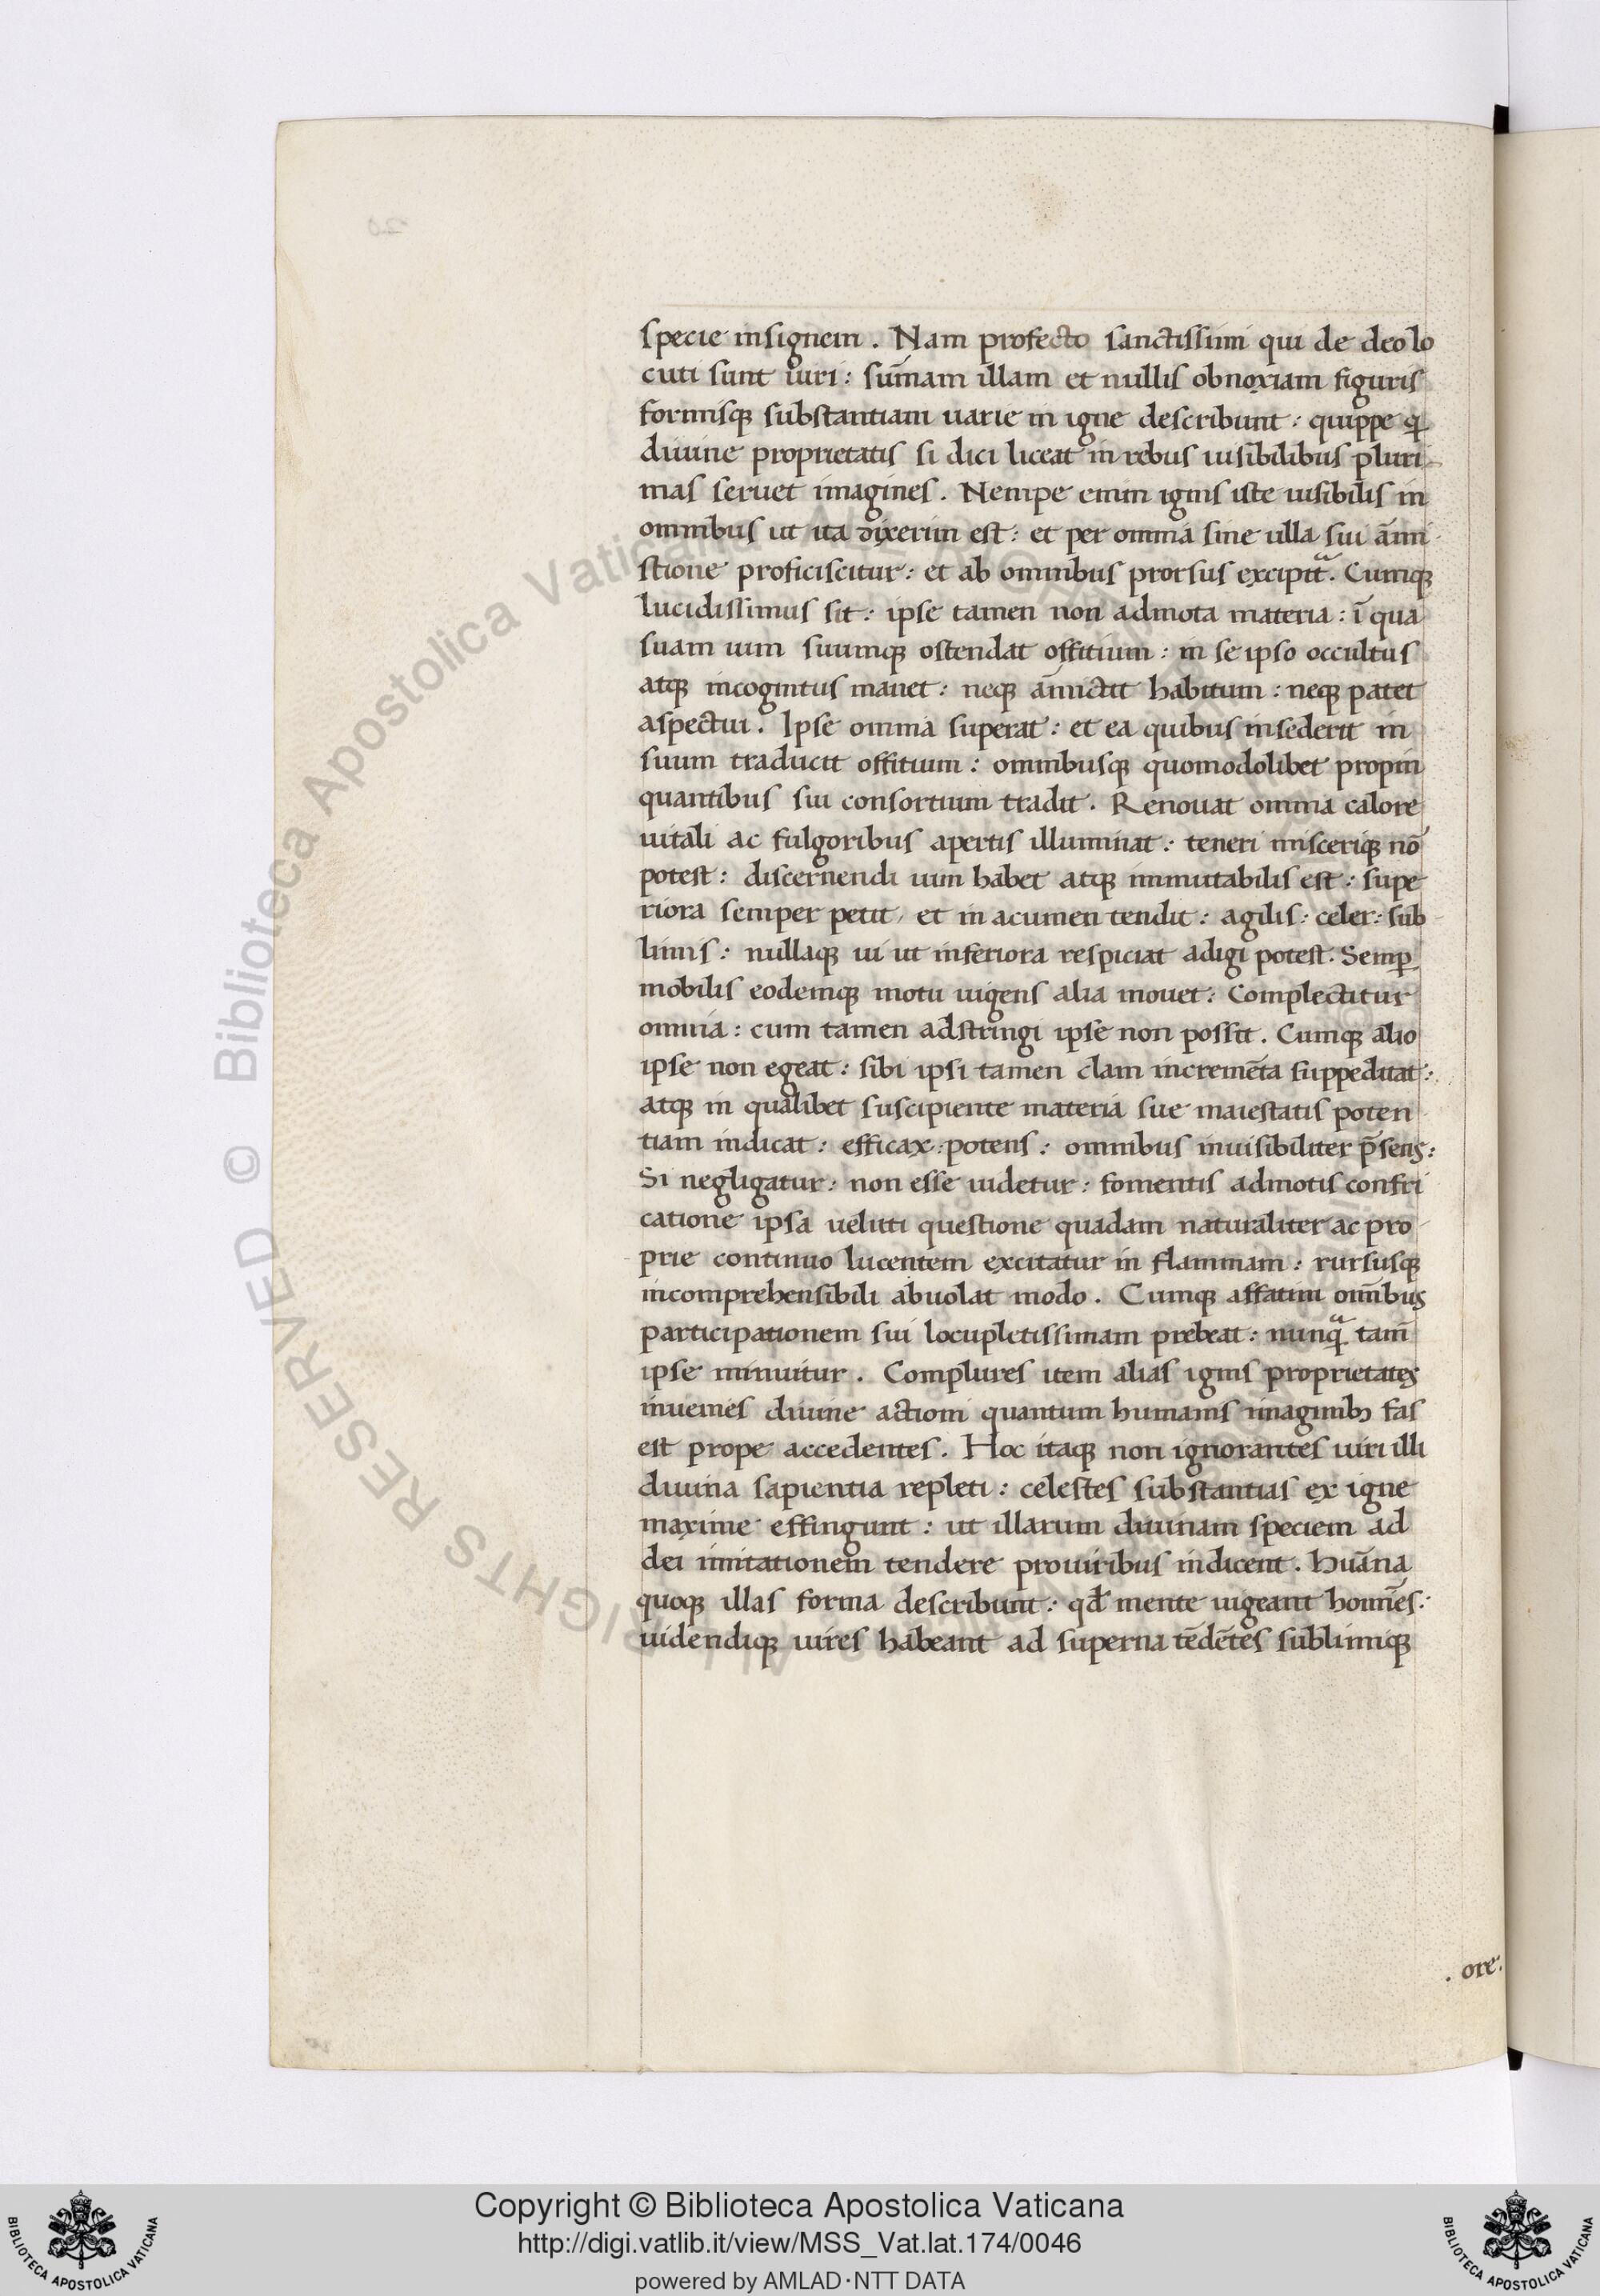 specie insignem. Nam profecto sanctissimi qui de deo lo
cuti sunt uiri: sūmam illam et nullis obnoxiam figuris
formisq; substantiam uarie in igne describunt: quippe q̄
diuine proprietatis si dici liceat in rebus uisibilibus pluri
mas seruet imagines. Nempe enim ignis iste uisibilis in
omnibus ut ita dixerim est: et per omnia sine ulla sui āmi
stione proficiscitur: et ab omnibus prorsus excipitᵃ. Cumq;
lucidissimus sit: ipse tamen non admota materia: ī qua
suam uim suumq; ostendat offitium: in se ipso occultus
atq; incognitus manet: neq; āmictit habitum: neq; patet
aspectui. Ipse omnia superat: et ea quibus insederit in
suum traducit offitium: omnibusq; quomodolibet propin
quantibus sui consortium tradit. Renouat omnia calore
uitali ac fulgoribus apertis illuminat: teneri misceriq; nō
potest: discernendi uim habet atq; immutabilis est: supe
riora semper petit, et in acumen tendit: agilis: celer: sub
limis: nullaq; ui ut inferiora respiciat adigi potest. Semꝑ
mobilis eodemq; motu uigens alia mouet: Complectitur
omnia: cum tamen adstringi ipse non possit. Cumq; alio
ipse non egeat: sibi ipsi tamen clam incremēta suppeditat:
atq; in qualibet suscipiente materia sue maiestatis poten
tiam indicat: efficax: potens: omnibus inuisibiliter p̄sens:
Si negligatur: non esse uidetur: fomentis admotis confri
catione ipsa ueluti questione quadam naturaliter ac pro
prie continuo lucentem excitatur in flammam: rursusq;
incomprehensibili abuolat modo. Cumq; affatim om̄ibus
participationem sui locupletissimam prebeat: nunqᵃ tam̄
ipse minuitur. Complures item alias ignis proprietates
inuenies diuine actioni quantum humanis imaginibꝫ fas
est prope accedentes. Hoc itaq; non ignorantes uiri illi
diuina sapientia repleti: celestes substantias ex igne
maxime effingunt: ut illarum diuinam speciem ad
dei imitationem tendere prouiribus indicent. huāna
quoq; illas forma describunt: qđ mente uigeant homīes:
uidendiq; uires habeant ad superna tēdētes sublimiq;
. ore:
© Biblioteca Apostolica Vaticana ALL RIGHTS RESERVED
Copyright © Biblioteca Apostolica Vaticana
http://digi.vatlib.it/view/MSS_Vat.lat.174/0046
powered by AMLAD·NTT DATA
BIBLIOTECA APOSTOLICA VATICANA
BIBLIOTECA APOSTOLICA VATICANA